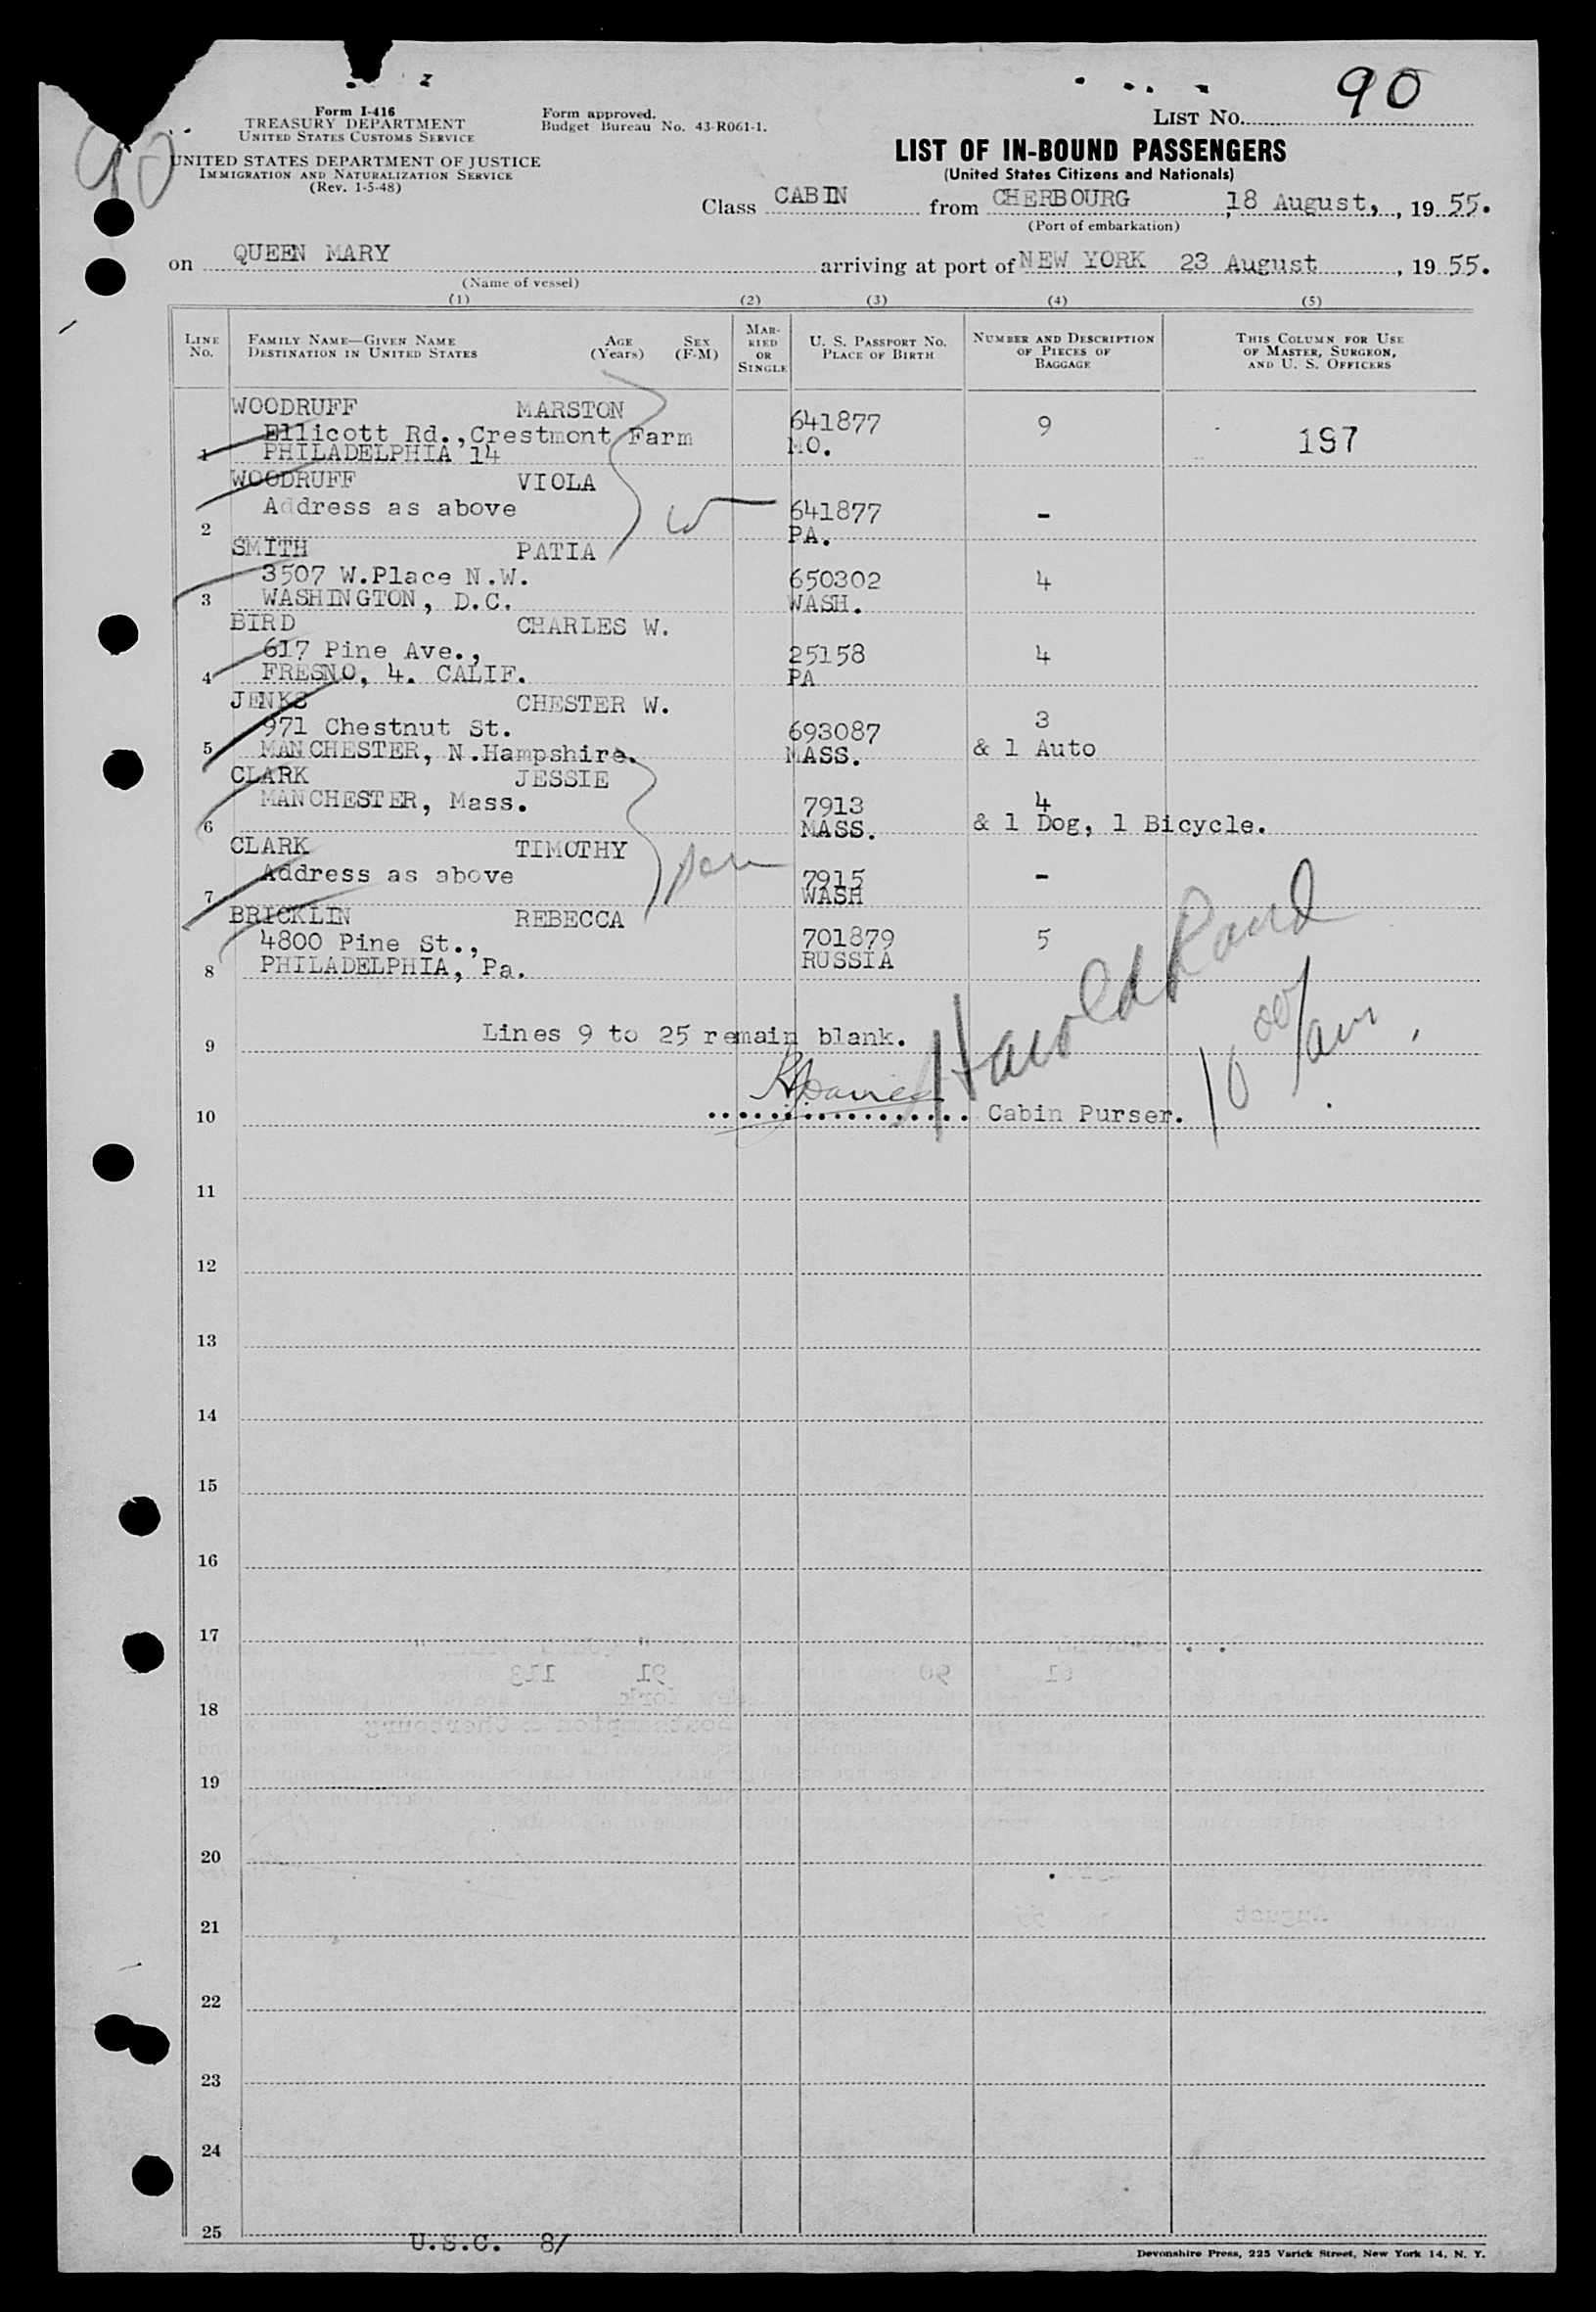 90
Form I-416
TREASURY DEPARTMENT
UNITED STATES CUSTOMS SERVICE
UNITED STATES DEPARTMENT OF JUSTICE
IMMIGRATION AND NATURALIZATION SERVICE
(Rev. 1-5-48)
Form approved.
Budget Bureau No. 43-R061-1.
LIST NO. 90
LIST OF IN-BOUND PASSENGERS
(United States Citizens and Nationals)
Class CABIN from CHERBOURG, 18 August, , 19 55.
(Port of embarkation)
on QUEEN MARY arriving at port of NEW YORK 23 August , 19 55.
(Name of vessel)
(1) (2) (3) (4) (5)
LINE No. FAMILY NAME—GIVEN NAME DESTINATION IN UNITED STATES AGE (Years) SEX (F-M) MARRIED OR SINGLE U. S. PASSPORT NO. PLACE OF BIRTH NUMBER AND DESCRIPTION OF PIECES OF BAGGAGE THIS COLUMN FOR USE OF MASTER, SURGEON, AND U. S. OFFICERS
WOODRUFF MARSTON
Ellicott Rd.,Crestmont Farm 641877 9 197
1 PHILADELPHIA 14 MO.
WOODRUFF VIOLA
Address as above 641877 -
2 PA.
SMITH PATIA
3507 W.Place N.W. 650302 4
3 WASHINGTON, D.C. WASH.
BIRD CHARLES W.
617 Pine Ave., 25158 4
4 FRESNO, 4. CALIF. PA
JENKS CHESTER W.
971 Chestnut St. 693087 3
5 MANCHESTER, N.Hampshire. MASS. & 1 Auto
CLARK JESSIE
MANCHESTER, Mass. 7913 4
6 MASS. & 1 Dog, 1 Bicycle.
CLARK TIMOTHY
Address as above 7915 -
7 WASH
BRICKLIN REBECCA
4800 Pine St., 701879 5
8 PHILADELPHIA, Pa. RUSSIA
Harold Rand
10 00/am.
9 Lines 9 to 25 remain blank.
10 Cabin Purser.
11
12
13
14
15
16
17
18
19
20
21
22
23
24
25
U.S.C. 8/
Devonshire Press, 225 Varick Street, New York 14, N. Y.